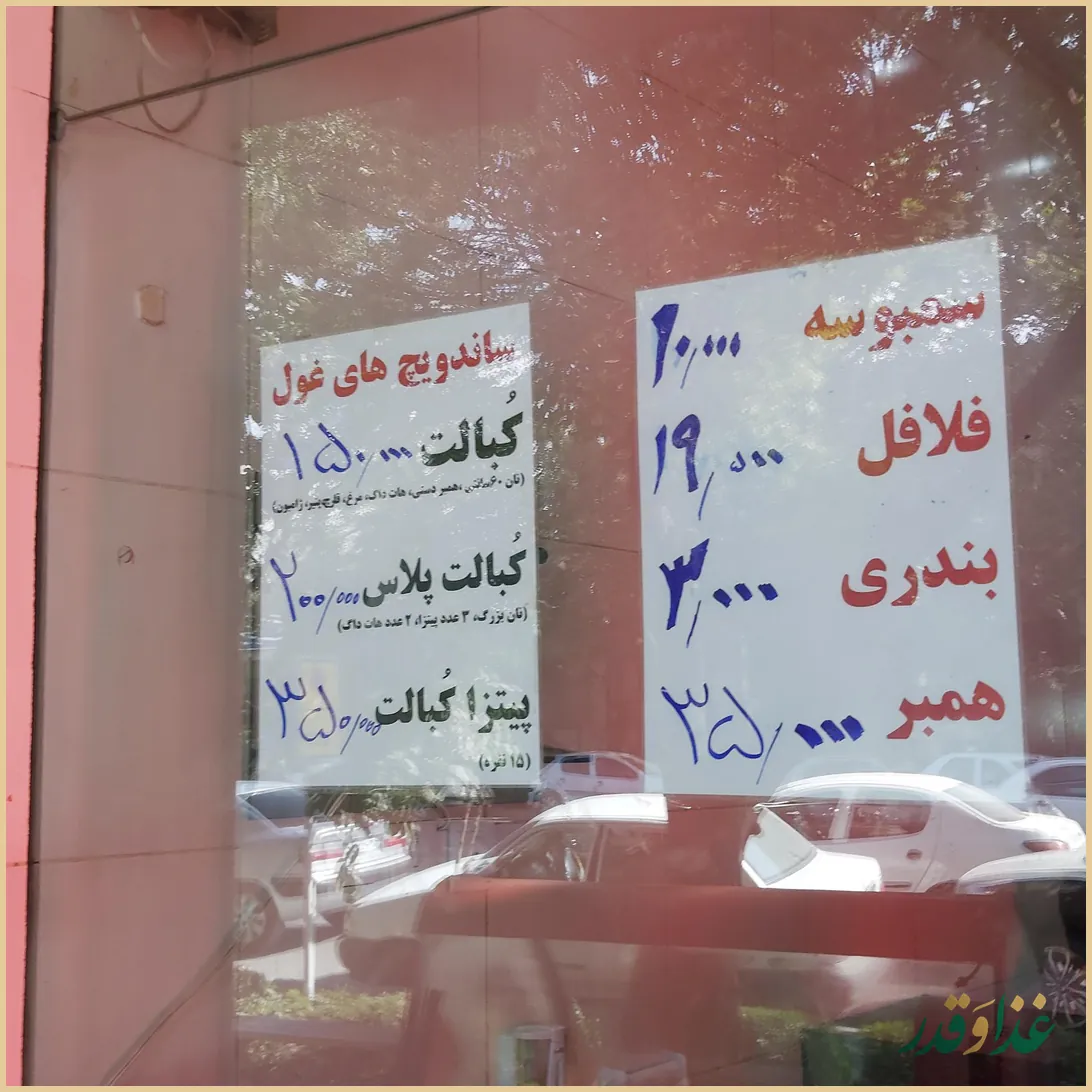 سمبوسه ۱۰,۰۰۰
فلافل ۱۹,۰۰۰
بندری ۳,۰۰۰
همبر ۳۵,۰۰۰
ساندویچ های غول
کُبالت ۱۵۰,۰۰۰
(نان ۶۰سانتی ،همبر دستی، هات داگ، مرغ، قارچ،پنیر، ژامبون)
کُبالت پلاس ۲۰۰,۰۰۰
(نان بزرگ، ۳ عدد پیتزا، ۲ عدد هات داگ)
پیتزا کُبالت ۳۵۰,۰۰۰
(۱۵ نفره)
غذا وَ قدر